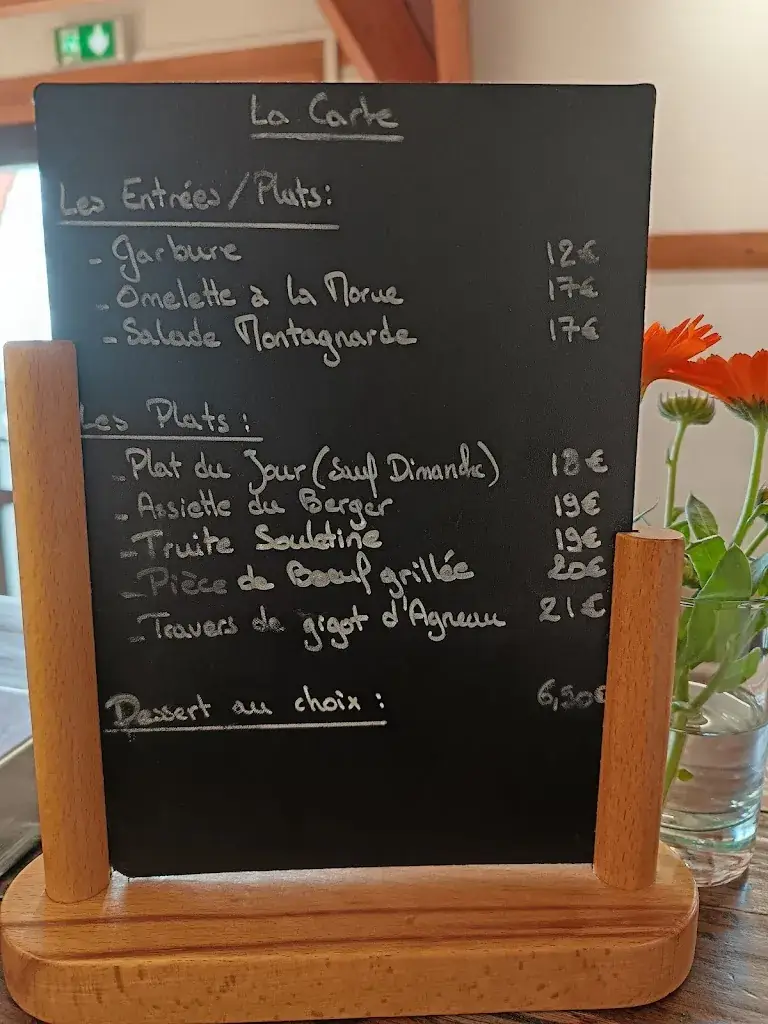 La Carte
Les Entrées/Plats:
- Garbure 12€
- Omelette à la Morue 17€
- Salade Montagnarde 17€
Les Plats:
- Plat du Jour (Sauf Dimanche) 18€
- Assiette du Berger 19€
- Truite Souletine 19€
- Pièce de Boeuf grillée 20€
- Travers de gigot d'Agneau 21€
Dessert au choix: 6,50€